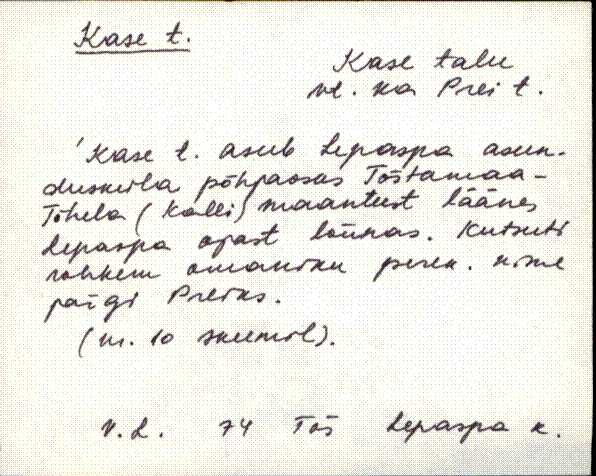 Kase t.
Kase talu
vt. ka Prei t.
'Kase t. asub Lepaspa asun-
dusküla põhjaosas Tõstamaa-
Tõhela (Kalli) maanteest läänes
Lepaspa ojast lõunas. Kutsuti
rohkem omaniku perek. nime
paigi Preiks.
(nr. 10 skeemil).
V.L. 74 Tõs Lepaspa k.